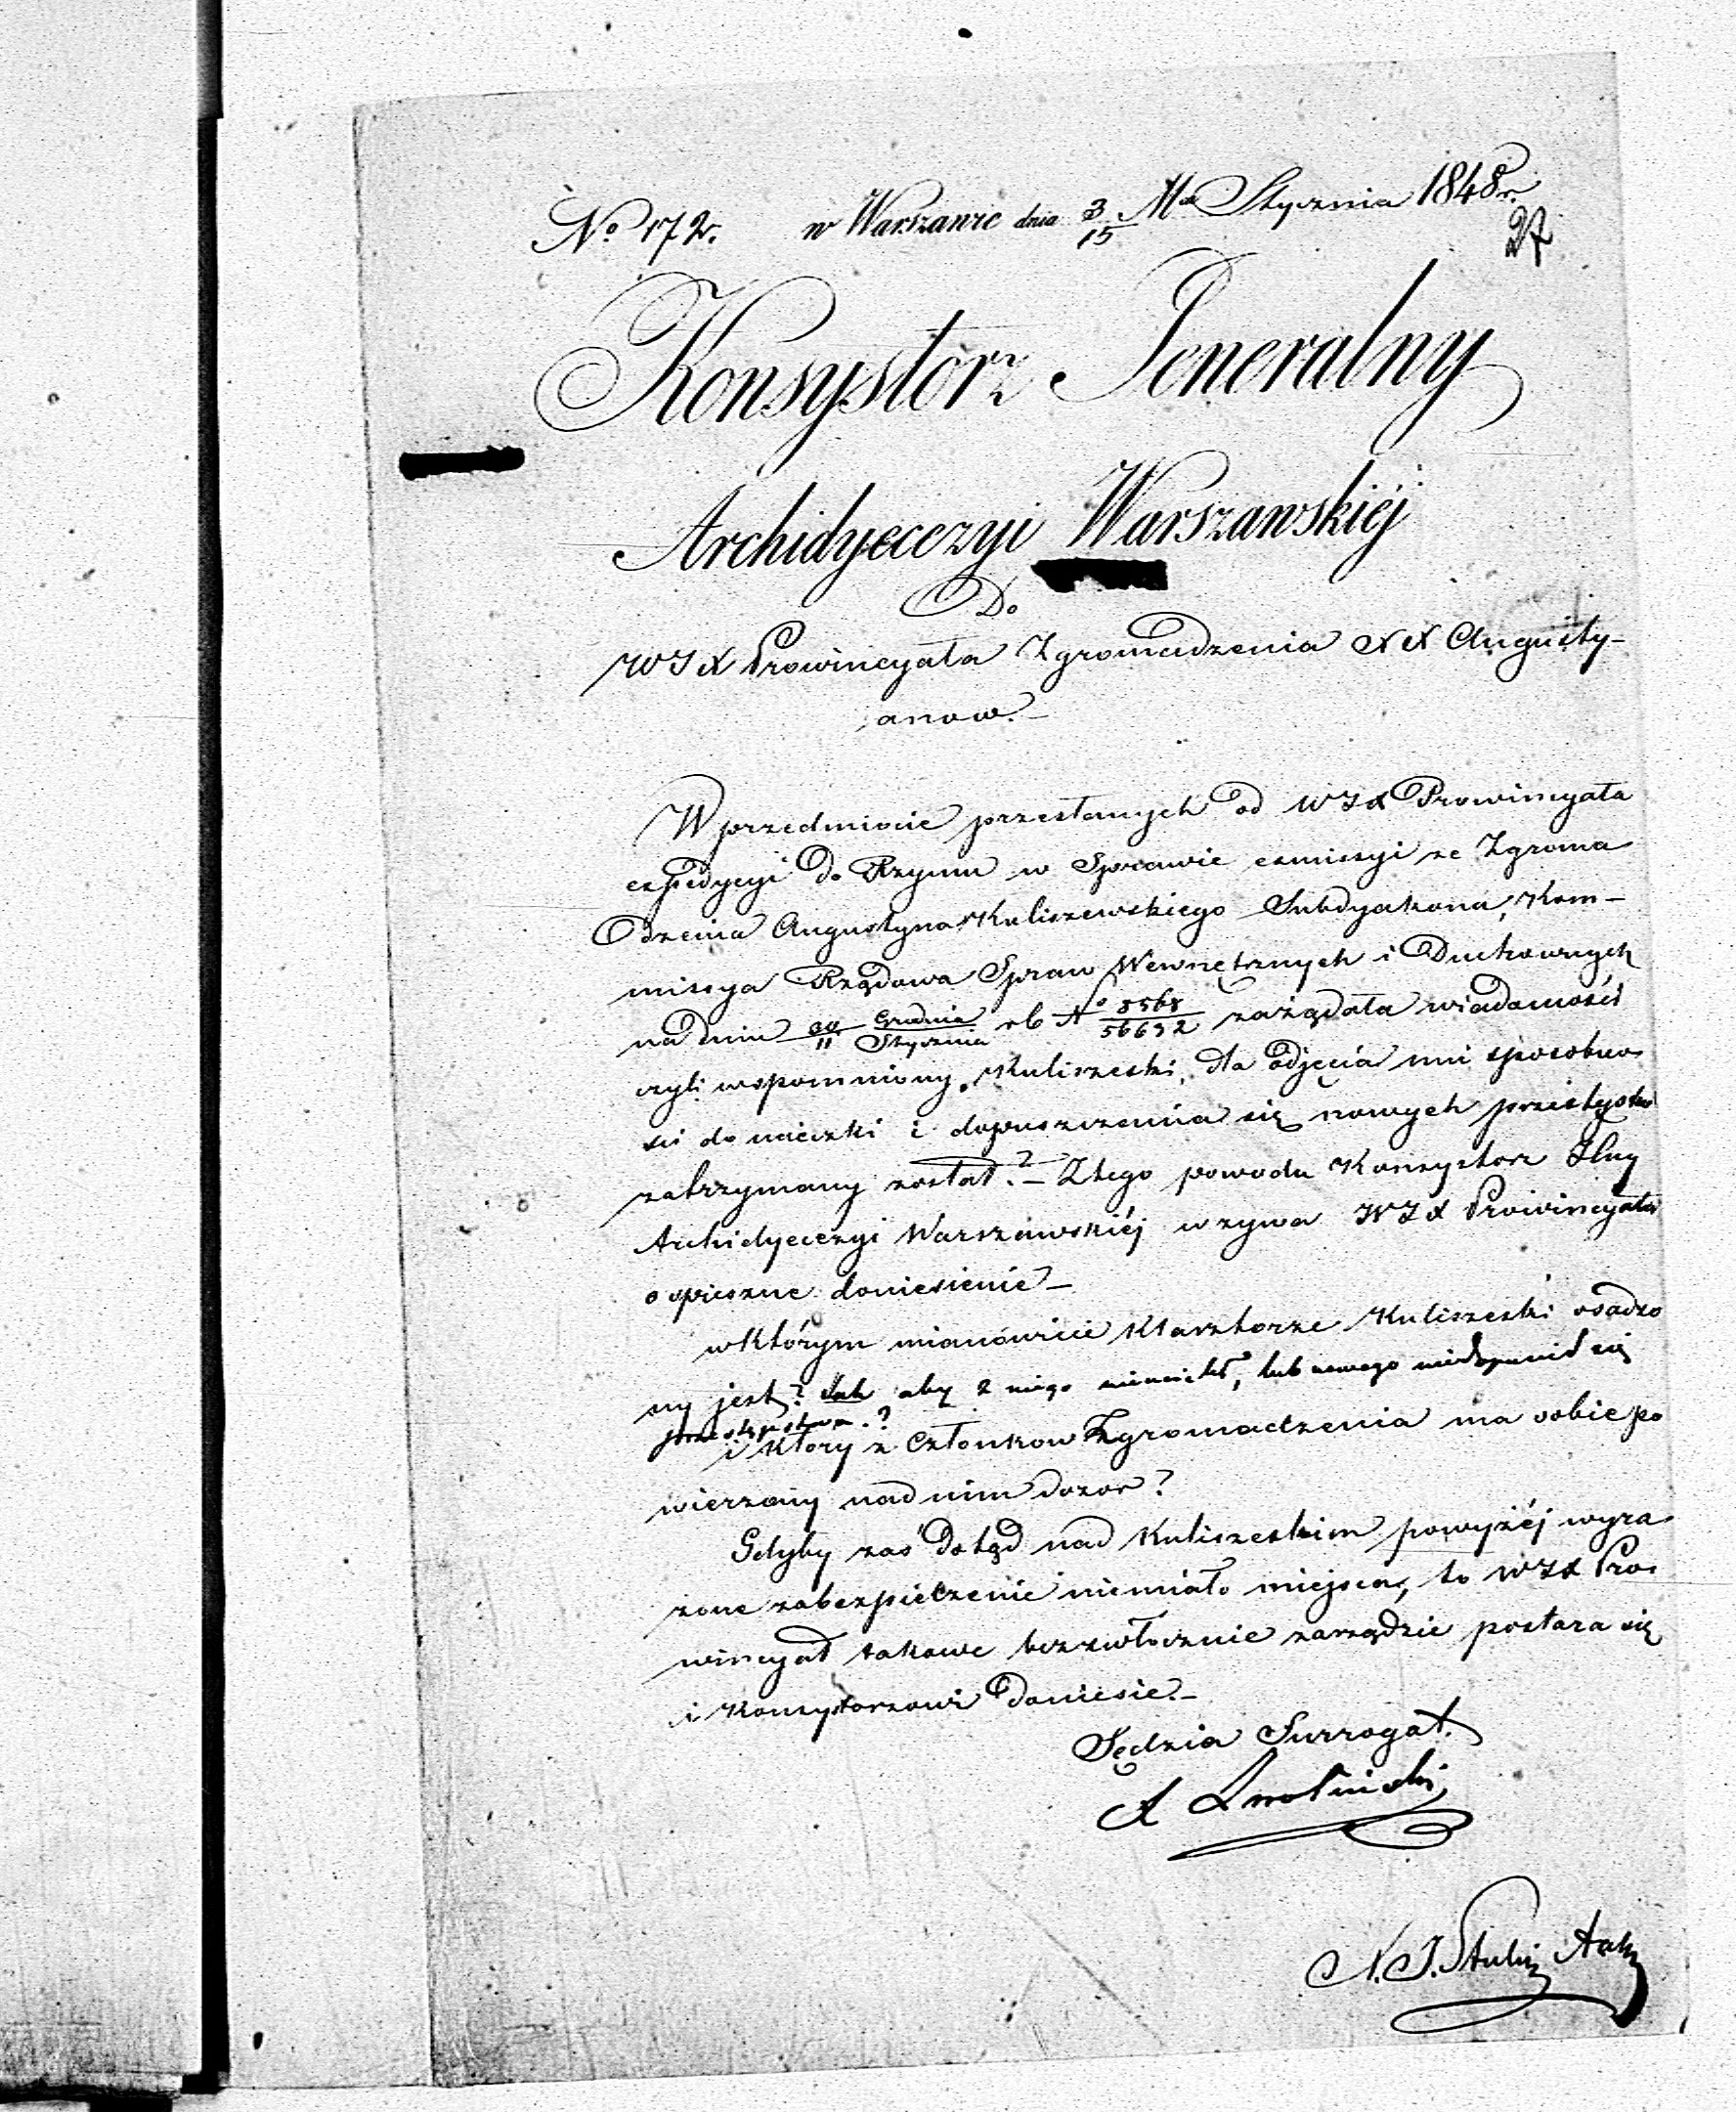 No 172. w Warszawie dnia 3/15 Mca Stycznia 1848 r.
27
Konsystorz Jeneralny
Archidyecezyi Warszawskiéj
Do
WJX Prowincyała Zgromadzenia XX Augusty-
anow.-
W przedmiocie przesłanych od WJX Prowincyała
expedycyi do Rzymu w Sprawie exmissyi ze Zgroma
dzenia Augustyna Kuliszewskiego Subdyakona, Kom-
missya Rządowa Spraw Wewnętrznych i Duchownych
na dniu 30/11 Grudnia/Stycznia rb No 8568/56632 zażądała wiadomości
czyli wspomniony Kuliszeski, dla odjęcia mu sposobno
ści do ucieczki i dopuszczenia się nowych przestępstw
zatrzymany został?- Ztego powodu Konsystorz Jlny
Archidyecezyi Warszawskiéj wzywa WJX Prowincyała
o spieszne doniesienie-
w którym mianowicie Klasztorze Kuliszeski osadzo
ny jest? tak aby z niego nieuciekł, lub nowego niedopuścił się
przestępstwa.?
i który z Członkow Zgromadzenia ma sobie po
wierzony nad nim dozor?
Gdyby zaś dotąd nad Kuliszeskim powyżéj wyra
żone zabezpieczenie niemiało miejsca, to WJX Pro-
wincyał takowe bezzwłocznie zarządzić postara się
i Konsystorzowi doniesie.-
Sędzia Surrogat.
A
N. J.